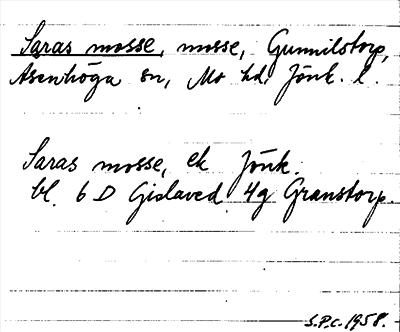 Saras mosse, mosse, Gunnilstorp,
Åsenhöga sn, Mo hd. Jönk. l.
Saras mosse, ek Jönk.
bl. 6 D Gislaved 4g Granstorp.
S.P.C. 1958.